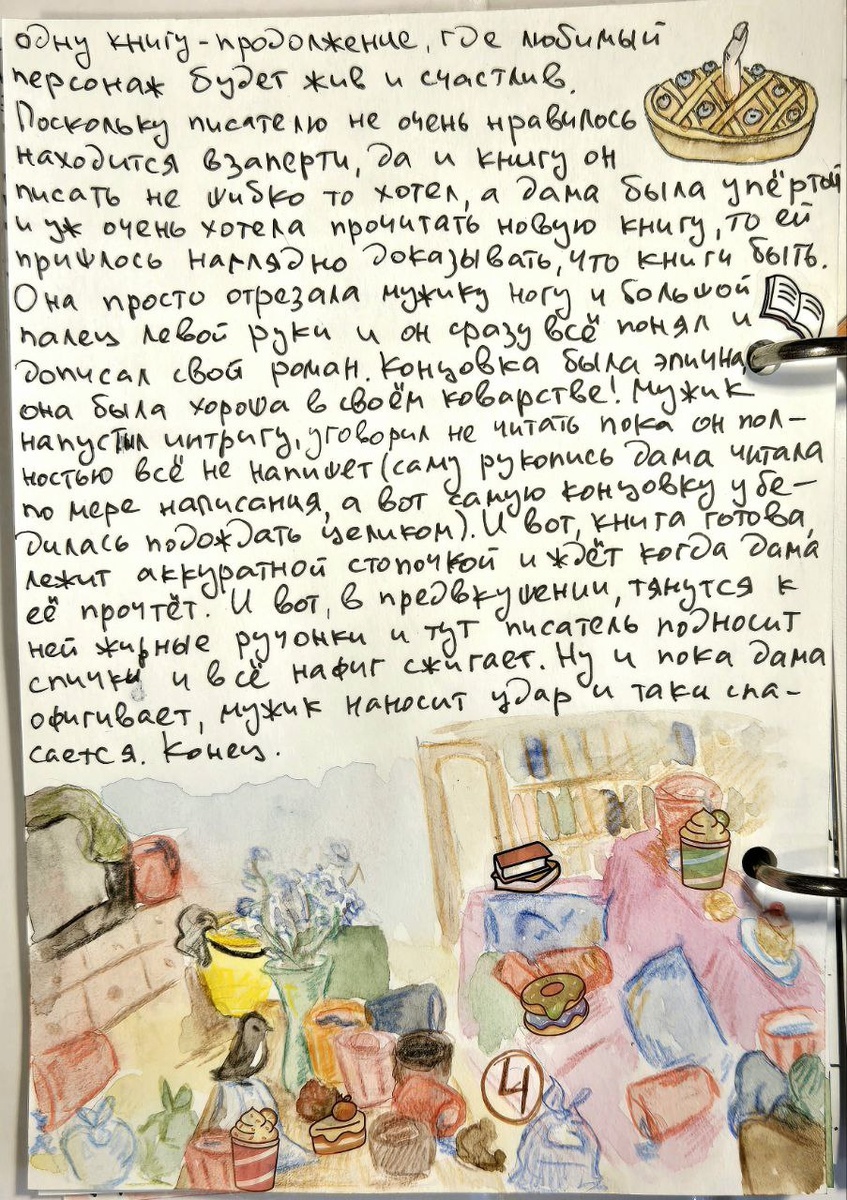 одну книгу-продолжение, где любимый
персонаж будет жив и счастлив.
Поскольку писателю не очень нравилось
находится взаперти, да и книгу он
писать не шибко то хотел, а дама была упёртой
и уж очень хотела прочитать новую книгу, то ей
пришлось наглядно доказывать, что книги быть.
Она просто отрезала мужику ногу и большой
палец левой руки и он сразу всё понял и
дописал свой роман. Концовка была эпична,
она была хороша в своём коварстве! Мужик
напустил интригу, уговорил не читать пока он пол-
ностью всё не напишет (саму рукопись дама читала
по мере написания, а вот самую концовку убе-
дилась подождать целиком). И вот, книга готова,
лежит аккуратной стопочкой и ждёт когда дама
её прочтёт. И вот, в предвкушении, тянутся к
ней жирные ручонки и тут писатель подносит
спички и всё нафиг сжигает. Ну и пока дама
офигивает, мужик наносит удар и таки спа-
сается. Конец.
4